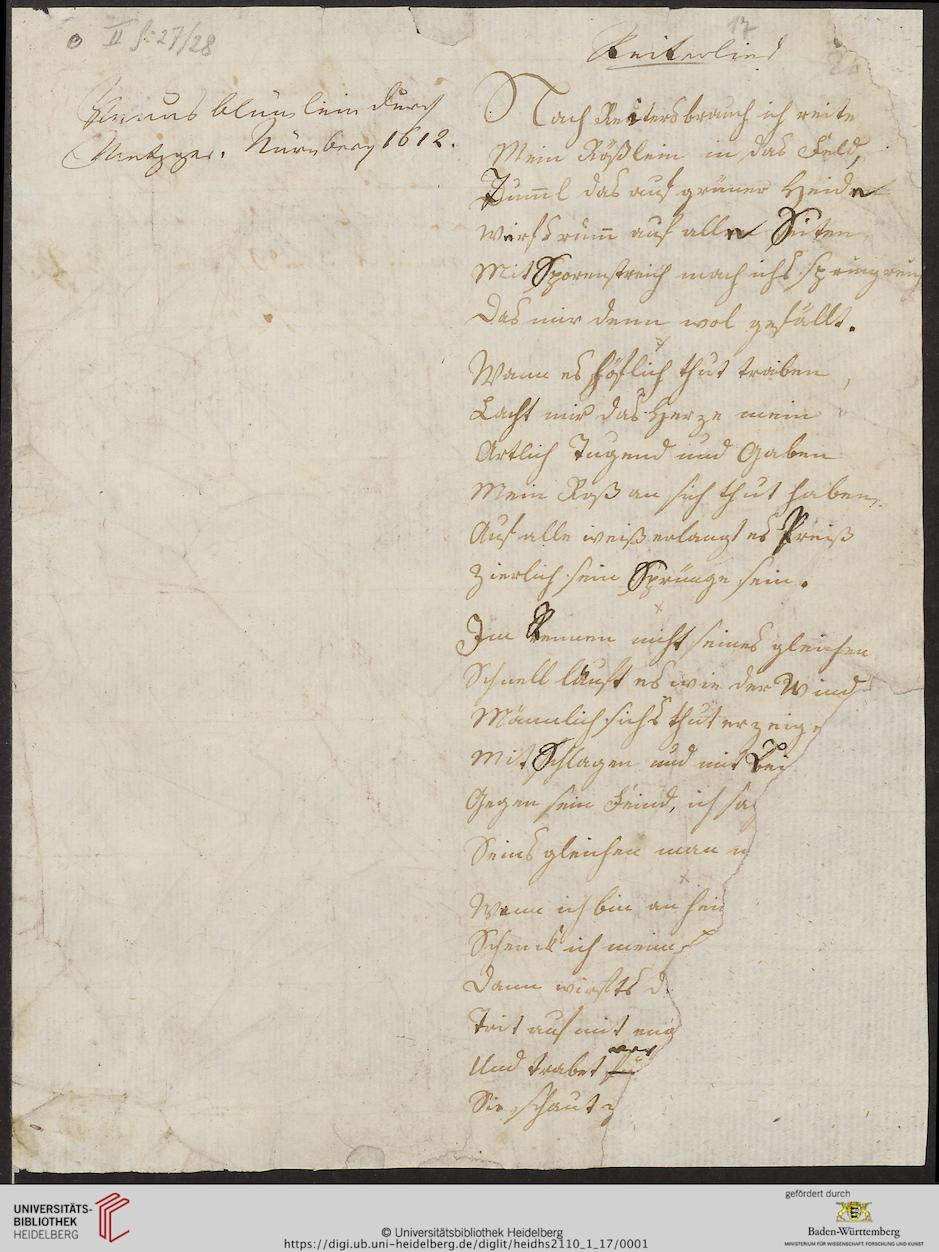 II S. 27/28
17
Reiterlied
Venusblümlein durch
Metzger. Nürnberg 1612.
Nach Reitersbrauch ich reite
Mein Rößlein in das Feld,
Tummel das auf grüner Heide
Wirfs rum auf alle Seiten
Mit Sporenstreich mach ichs
Das mir denn wol gefällt.
Wann es höflich thut traben,
Lacht mir das Herze mein
Artlich Tugend und Gaben
Mein Roß an sich thut haben,
Auf alle weiß erlangt es Preiß
Zierlich sein Sprünge sein.
Im Rennen nicht seines gleichen
Schnell läuft es wie der Wind
Männlich sichs thut erzeige
Mit Schlagen und mit Bei
Gegen sein Feind, ich sa
Seins gleichen man n
Wenn ich bin an
Schenk ich meim
Dann wirfts d
Trit auf mit
Und trabet
Sie schaut
UNIVERSITÄTS-
BIBLIOTHEK
HEIDELBERG
© Universitätsbibliothek Heidelberg
https://digi.ub.uni-heidelberg.de/diglit/heidhs2110_1_17/0001
gefördert durch
Baden-Württemberg
MINISTERIUM FÜR WISSENSCHAFT, FORSCHUNG UND KUNST